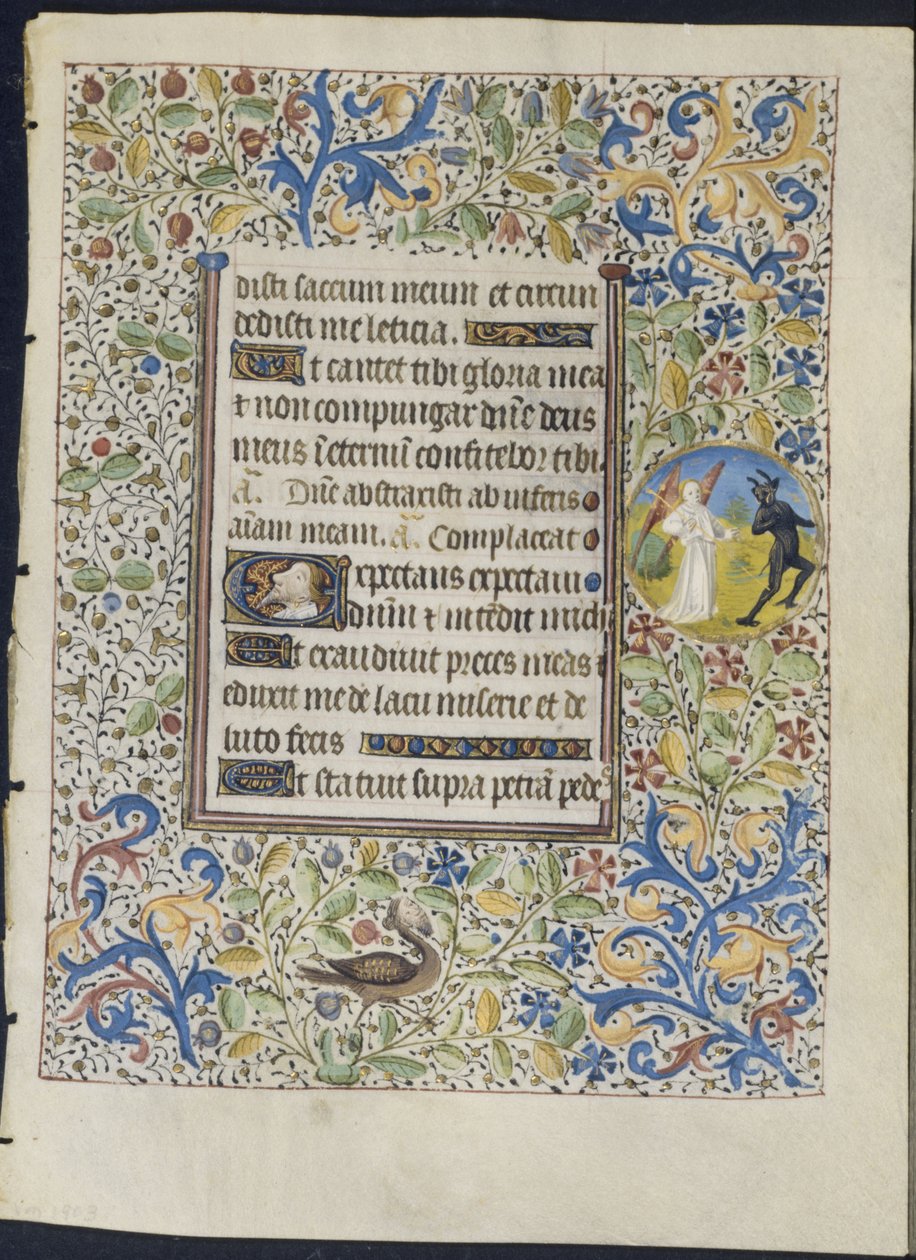 disti saccum meum et circun
dedisti me leticia.
Ut cantet tibi gloria mea
⁊ non compungar dn̄e deus
meus ī eternū confitebor tibi.
a᷒. Dn̄e abstraxisti ab inferis
aīam meam. a᷒. Complaceat
Expectans expectaui
dn̄m ⁊ intēdit michi
Et exaudiuit preces meas ⁊
eduxit me de lacu miserie et de
luto fecis
Et statuit supra petrā pedes